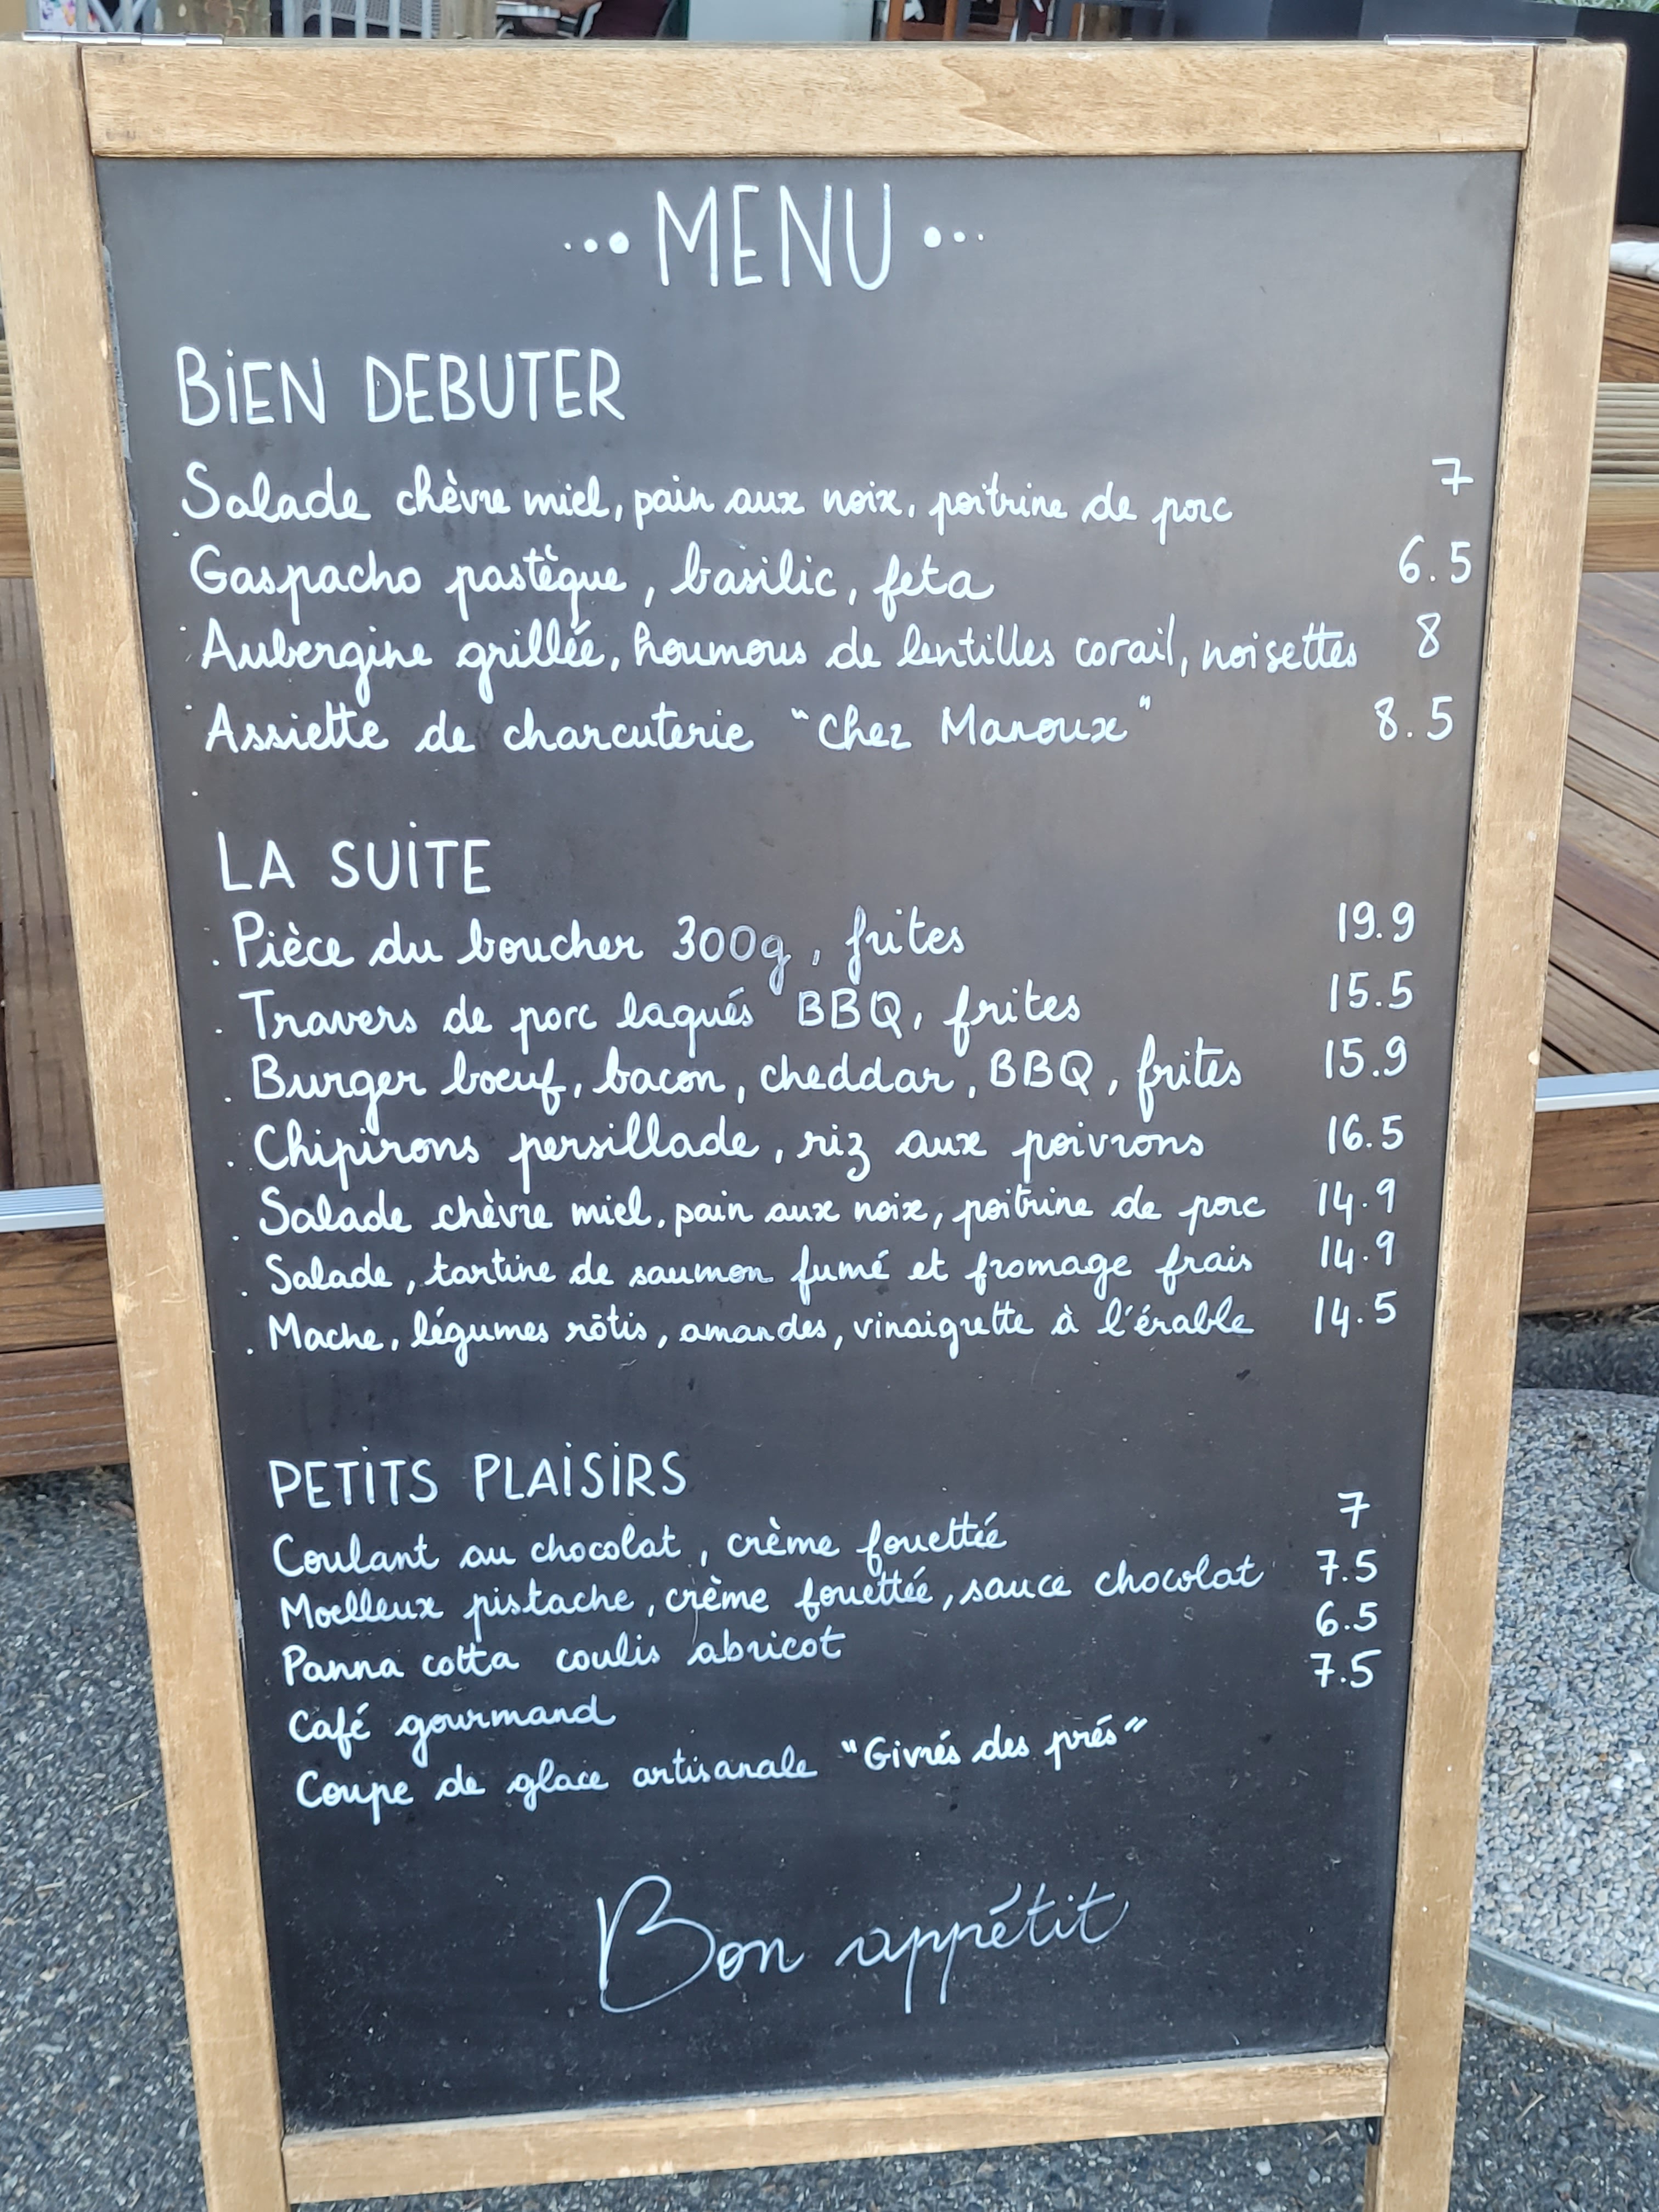 MENU
BiEN DEBUTER
Salade chèvre miel, pain aux noix, poitrine de porc 7
Gaspacho pastèque, basilic, feta 6.5
Aubergine grillée, houmous de lentilles corail, noisettes 8
Assiette de charcuterie "Chez Manoux" 8.5
LA SUiTE
. Pièce du boucher 300g, frites 19.9
. Travers de porc laqués BBQ, frites 15.5
. Burger boeuf, bacon, cheddar, BBQ, frites 15.9
. Chipirons persillade, riz aux poivrons 16.5
. Salade chèvre miel, pain aux noix, poitrine de porc 14.9
. Salade, tartine de saumon fumé et fromage frais 14.9
. Mache, légumes rôtis, amandes, vinaigrette à l'érable 14.5
PETITS PLAiSiRS
Coulant au chocolat, crème fouettée 7
Moelleux pistache, crème fouettée, sauce chocolat 7.5
Panna cotta coulis abricot 6.5
Café gourmand 7.5
Coupe de glace artisanale "Givrés des prés"
Bon appétit